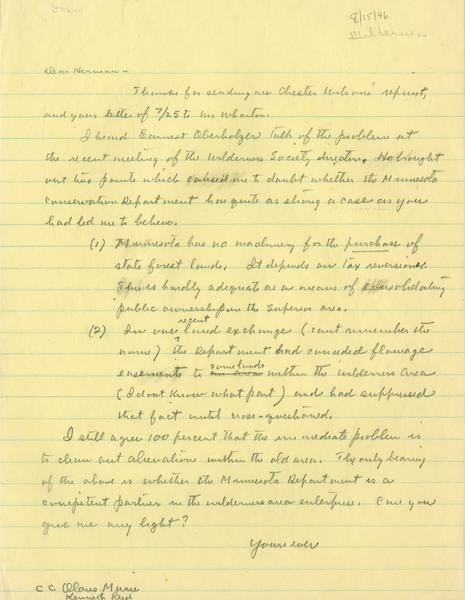 Done
8/15/46
Wilderness
Dear Herman -
Thanks for sending me Chester Wilsons' reprint,
and your letter of 7/25 to Mr Wharton.
I heard Earnest Oberholzer talk of the problem at
the recent meeting of the Wilderness Society directors. He brought
out two points which caused me to doubt whether the Minnesota
Conservation Department has quite as strong a case as you
had led me to believe.
(1) Minnesota has no machinery for the purchase of
state forest lands. It depends on tax reversions.
This is hardly adequate as a means of consolidating
public ownership in the Superior area.
(2) In one recent land exchange (cant remember the
name) the Department had conceded flowage
easements to some lands within the Wilderness Area
(I dont know what part) and had suppressed
that fact until cross-questioned.
I still agree 100 percent that the immediate problem is
to clean out alienations within the old area. The only bearing
of the above is whether the Minnesota Department is a
competent partner in the wilderness area enterprise. Can you
give me any light?
Yours ever
CC Olaus Murie
Kenneth Reid